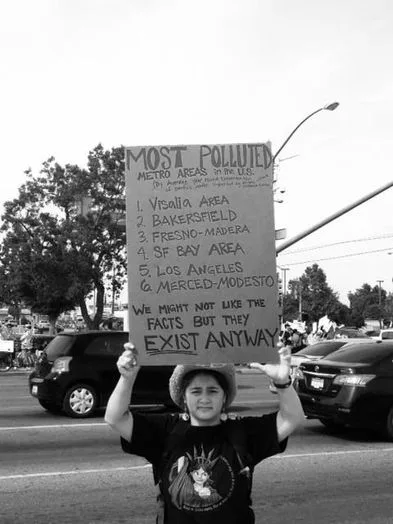 MOST POLLUTED
METRO AREAS in the U.S.
1. VISALIA AREA
2. BAKERSFIELD
3. FRESNO-MADERA
4. SF BAY AREA
5. LOS ANGELES
6. MERCED-MODESTO
WE MIGHT NOT LIKE THE
FACTS BUT THEY
EXIST ANYWAY